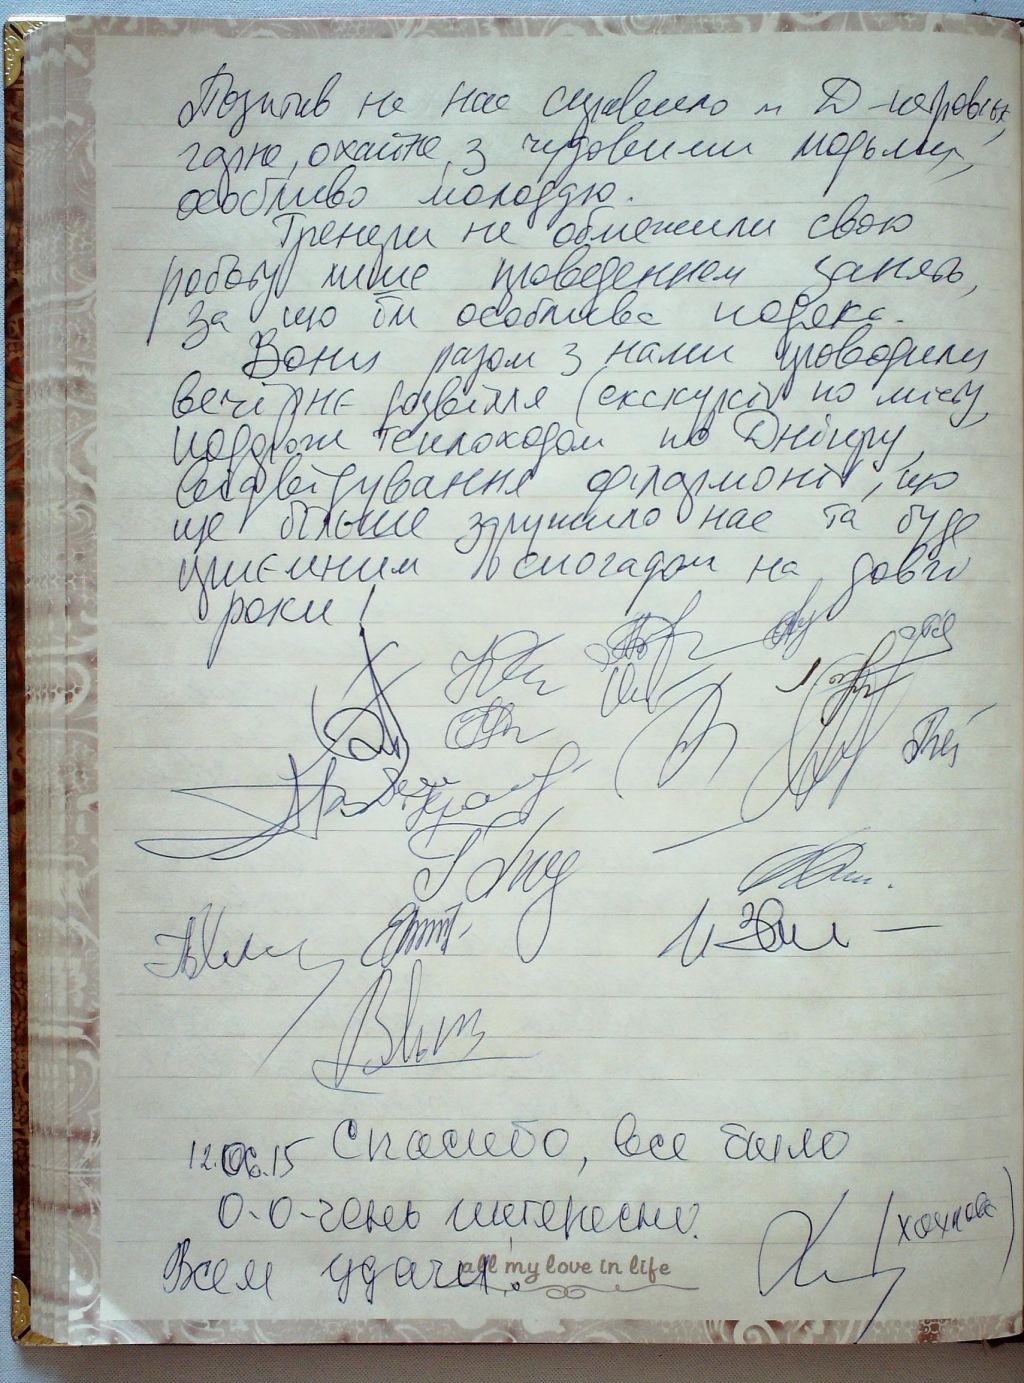 Позитив на нас справило м. Д-петровськ,
гарне, охайне, з чудовими людьми,
особливо молоддю.
Тренери не обмежили свою
роботу лише проведенням занять,
за що їм особлива подяка.
Вони разом з нами проводили
вечірнє дозвілля (екскурсії по місту,
подорож теплоходом по Дніпру,
відвідування філармонії, що
ще більше здружило нас та буде
приємним спогадом на довгі
роки!
12.06.15 Спасибо, все было
о-о-чень интересно.
Всем удачи!
all my love in life